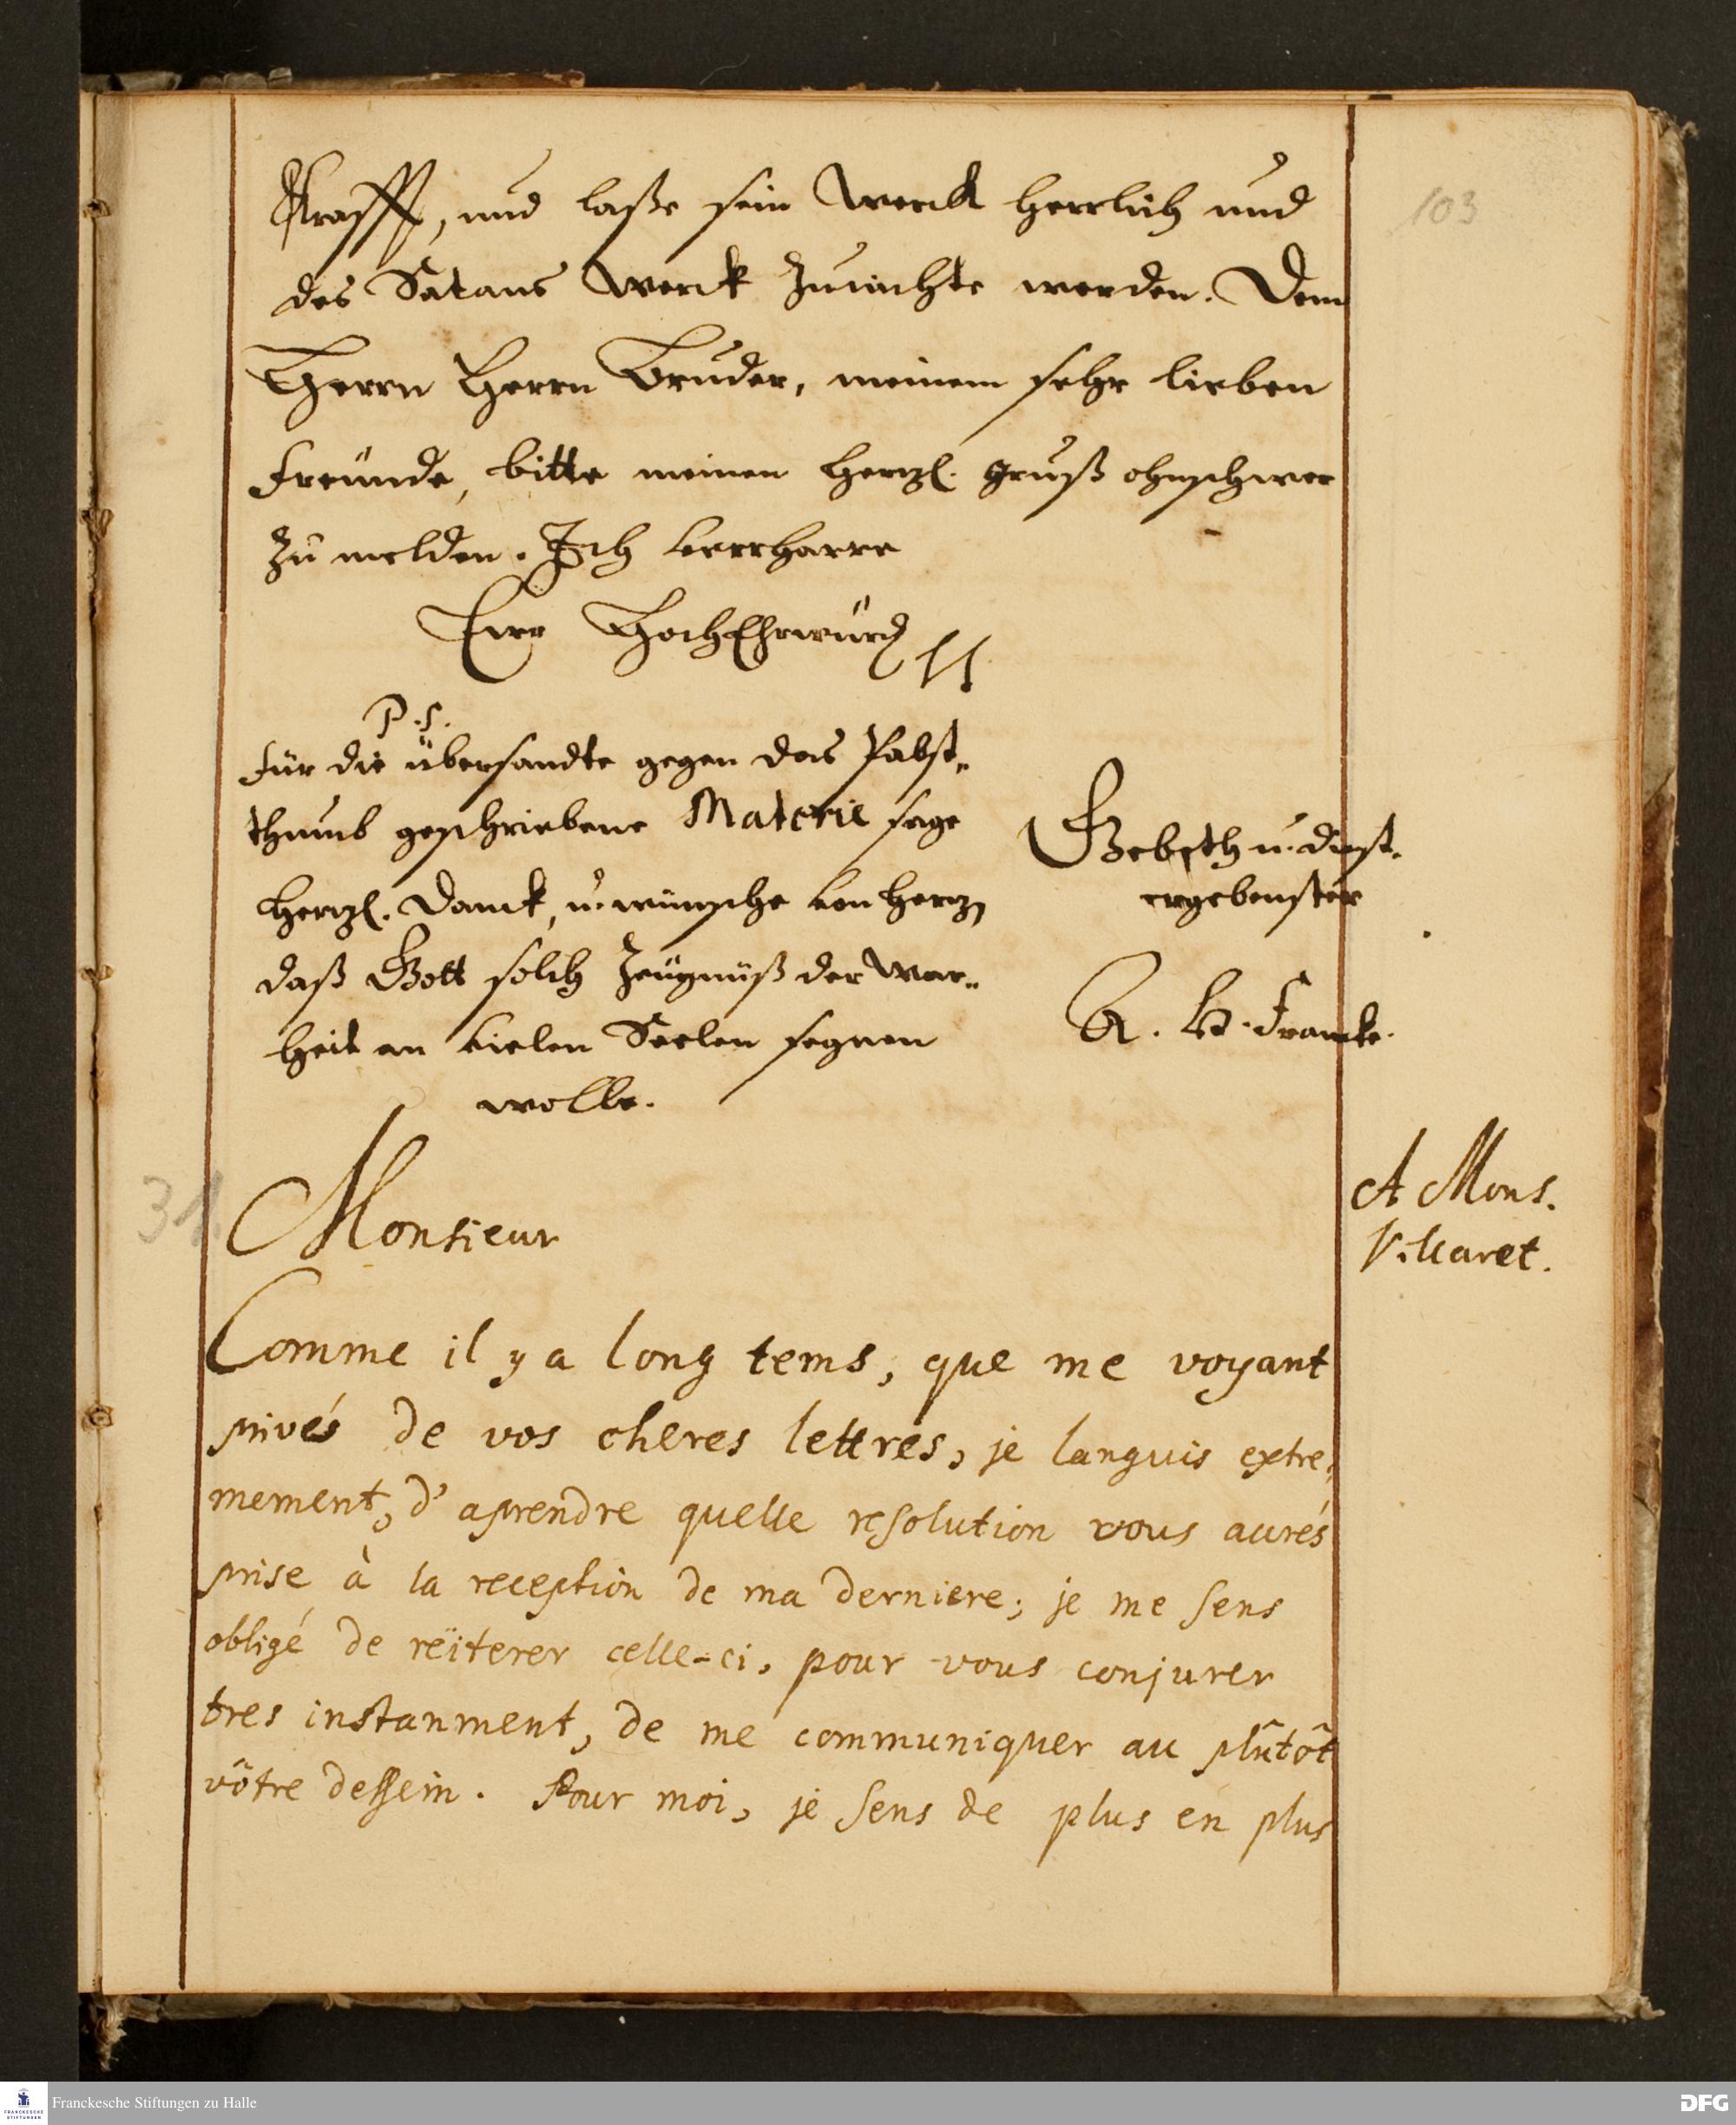 103
Krafft, und laße sein Werck herrlich und
des Satans Werck zunichte werden. Dem
Herrn Herrn Bruder, meinem sehr lieben
Freunde, bitte meinen hertzl. gruß ohnschwer
zu melden. Ich verrharre
Eurr HochEhrwürd
P.S.
Für die übersandte gegen das Pabst-
thumb geschriebene Materie sage
hertzl. Danck, u. wünsche von hertzn
daß Gott solch Zeügnüß der War-
heit an vielen Seelen segnen
wolle.
Gebeth u. dinst.
ergebenster
A. H. Francke.
31.
A Mons.
Villaret.
Monsieur
Comme il y a long tems, que me voyant
privés de vos cheres lettres, je languis extre-
mement, d'aprendre quelle resolution vous aurés
prise à la reception de ma derniere; je me sens
obligé de reïterer celle-ci, pour vous conjurer
tres instanment, de me communiquer au plûtôt
vôtre dessein. Pour moi, je sens de plus en plus
FRANCKESCHE STIFTUNGEN
Franckesche Stiftungen zu Halle
DFG